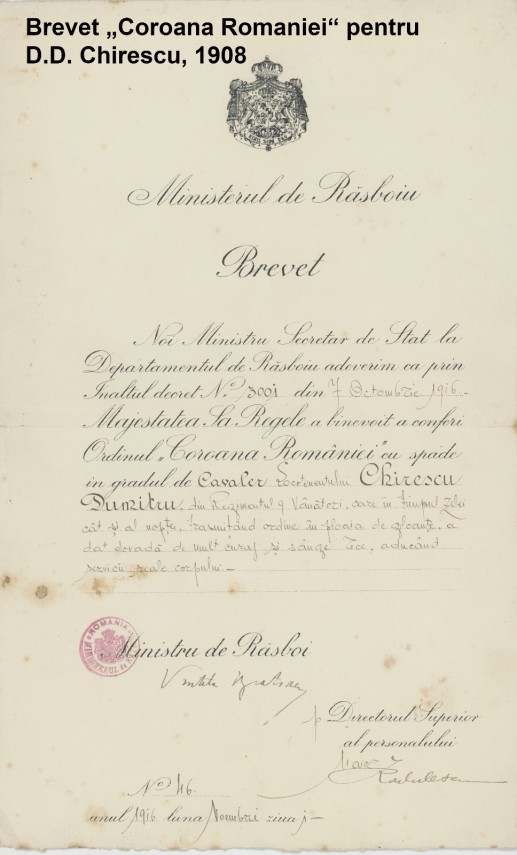 Brevet „Coroana Romaniei“ pentru
D.D. Chirescu, 1908
Ministerul de Răsboiu
Brevet
Noi Ministru Secretar de Stat la
Departamentul de Răsboiu adeverim ca prin
Inaltul decret No. 3001 din 7 Octombrie 1916
Majestatea Sa Regele a binevoit a conferi
Ordinul „Coroana României” cu spade
in gradul de Cavaler Locotenentului Chirescu
Dumitru, din Regimentul 9 Vânători, care în timpul zilei
cât și al nopței, trasmițând ordine în ploaia de gloanțe, a
dat dovadă de mult curaj și sânge rece, aducând
servicii reale corpului.—
ROMANIA
Ministru de Răsboi
Directorul Superior
al personalului
No. 46
anul 1916 luna Noembrie ziua